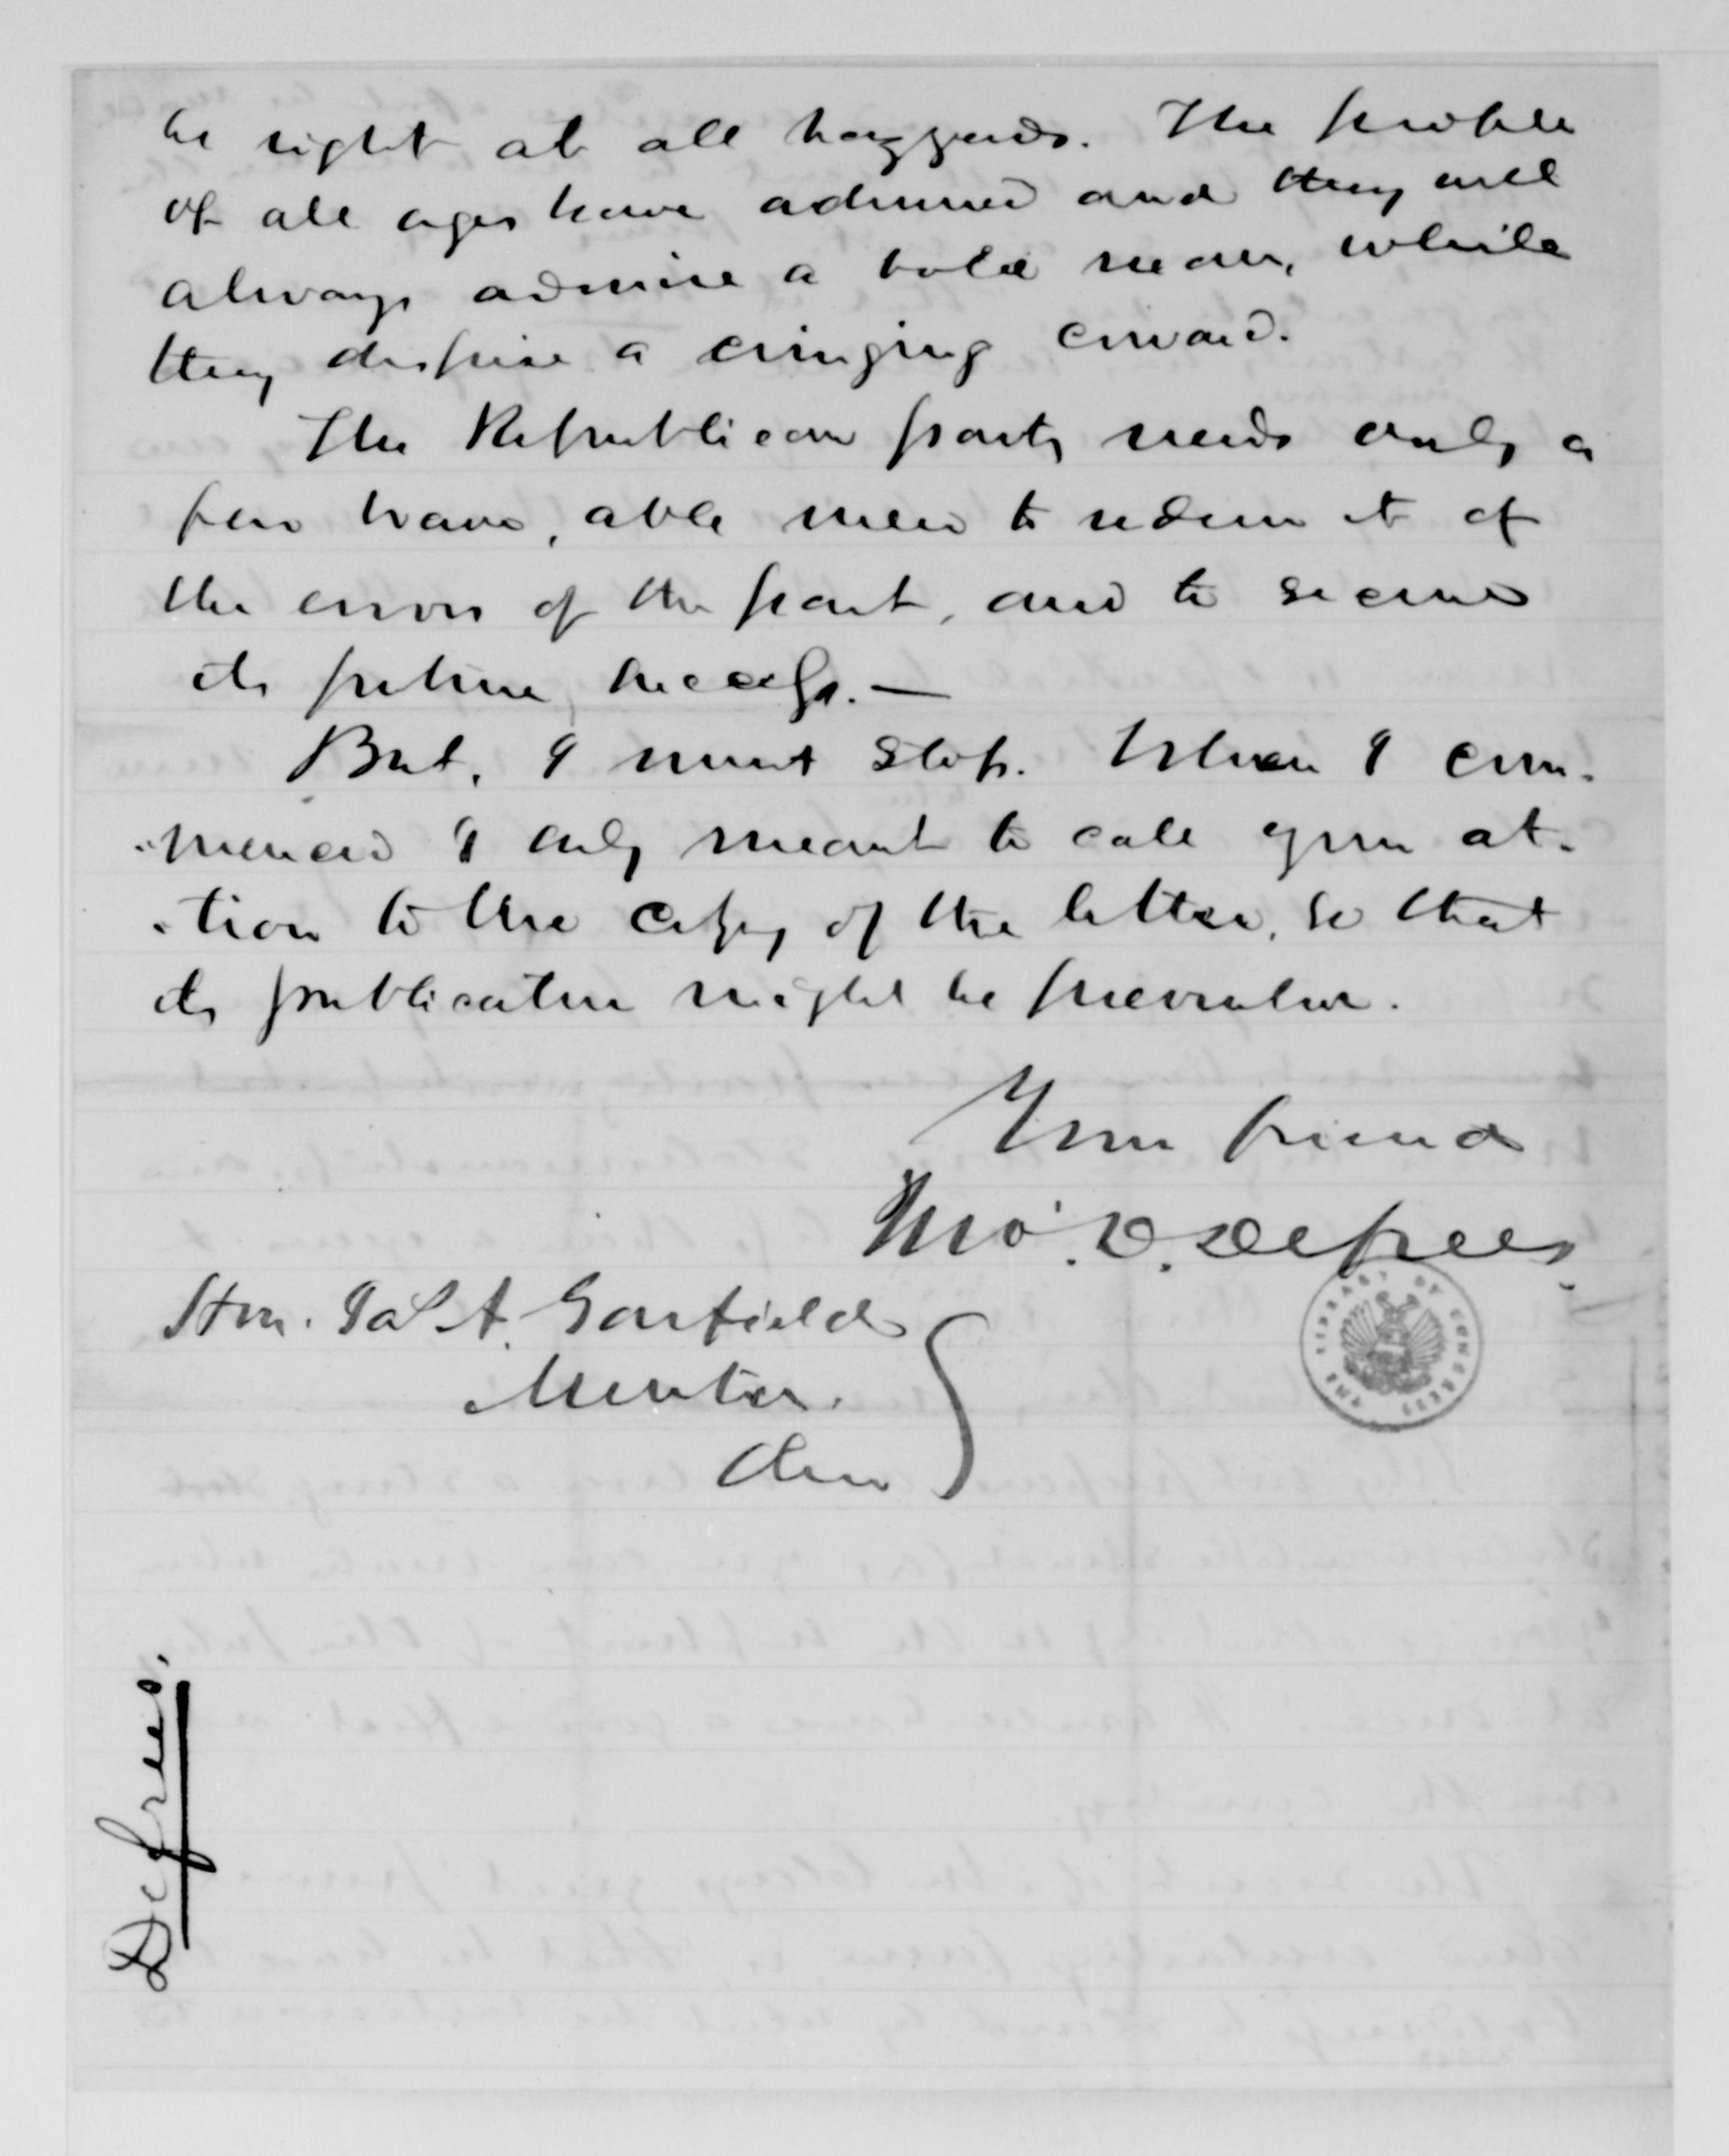 be right at all hazzards. The people
of all ages have admired and they will
always admire a bold man, while
they despise a cringing coward.
The Republican party needs only a
few brave, able men to redeem it of
the errors of the past, and to secure
its future success. —
But, I must stop. When I com-
-menced I only meant to call your at-
-tion to the copy of the letter, so that
its publication might be prevented.
Your friend
Jno. D. Defrees.
Hon. Jas A. Garfield
Mentor.
Ohio
THE LIBRARY OF CONGRESS
Defrees.